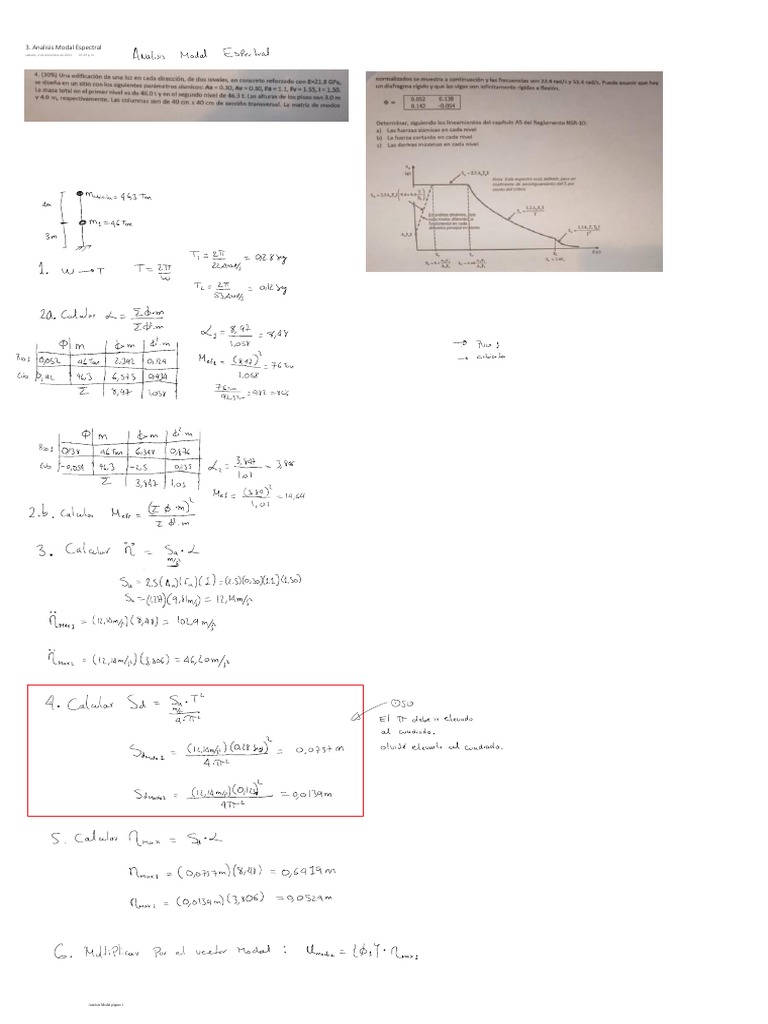 3. Analisis Modal Espectral
Analisis Modal Espectral
4. (30%) Una edificación de una luz en cada dirección, de dos niveles, en concreto reforzado con E=21.8 GPa,
se diseña en un sitio con los siguientes parámetros sísmicos: Aa = 0.30, Av = 0.30, Fa = 1.1, Fv = 1.55, I = 1.50.
La masa total en el primer nivel es de 46.0 t y en el segundo nivel de 46.3 t. Las alturas de los pisos son 3.0 m
y 4.0 m, respectivamente. Las columnas son de 40 cm x 40 cm de sección transversal. La matriz de modos
normalizados se muestra a continuación y las frecuencias son 22.4 rad/s y 53.4 rad/s. Puede asumir que hay
un diafragma rígido y que las vigas son infinitamente rígidas a flexión.
Φ =
0.052 0.138
0.142 -0.054
Determinar, siguiendo los lineamientos del capítulo A5 del Reglamento NSR-10:
a) Las fuerzas sísmicas en cada nivel
b) La fuerza cortante en cada nivel
c) Las derivas máximas en cada nivel
Nota: Este espectro está definido para un
coeficiente de amortiguamiento del 5 por
ciento del crítico
4m
3m
m1 = 46 Tm
1. W → T T = 2π/W
T1 = 2π/22,4rad/s = 0,28 seg
T2 = 2π/53,4rad/s = 0,12 seg
2a. Calcular α = Σφ·m/Σφ²·m
φ m φ·m φ²·m
Piso 1 0,052 46 Tm 2,392 0,124
Cub 0,142 46,3 6,575 0,934
Σ 8,97 1,058
α1 = 8,97/1,058 = 8,48
Mef1 = (8,97)²/1,058 = 76 Tm
→ Piso 1
→ cubierta
φ m φ·m φ²·m
Piso 1 0,138 46 Tm 6,348 0,876
Cub -0,054 46,3 -2,5 0,135
Σ 3,847 1,01
α2 = 3,847/1,01 = 3,806
Mef = (3,847)²/1,01 = 14,64
2.b. Calcular Mefe = (Σφ·m)²/Σφ²·m
3. Calcular η̈ = Sa·α
m/s²
Sa = 2,5(Aa)(Fa)(I) = (2,5)(0,30)(1,1)(1,50)
Sa = (1,237)(9,81m/s²) = 12,14m/s²
η̈max1 = (12,14m/s²)(8,48) = 102,9 m/s²
η̈max2 = (12,14m/s²)(3,806) = 46,20m/s²
4. Calcular Sd = Sa·T²/4·π²
m/s²
= (12,14m/s²)(0,28 seg)²/4·π² = 0,0757 m
= (12,14m/s²)(0,12s)²/4π² = 0,0139m
OJO
El π debe ir elevado
al cuadrado.
olvidé elevarlo al cuadrado.
5. Calcular ηmax = Sd·α
ηmax1 = (0,0757m)(8,48) = 0,6419m
ηmax2 = (0,0139m)(3,806) = 0,0529m
6. Multiplicar por el vector Modal: = {φ1}·ηmax1
Analisis Modal página 1